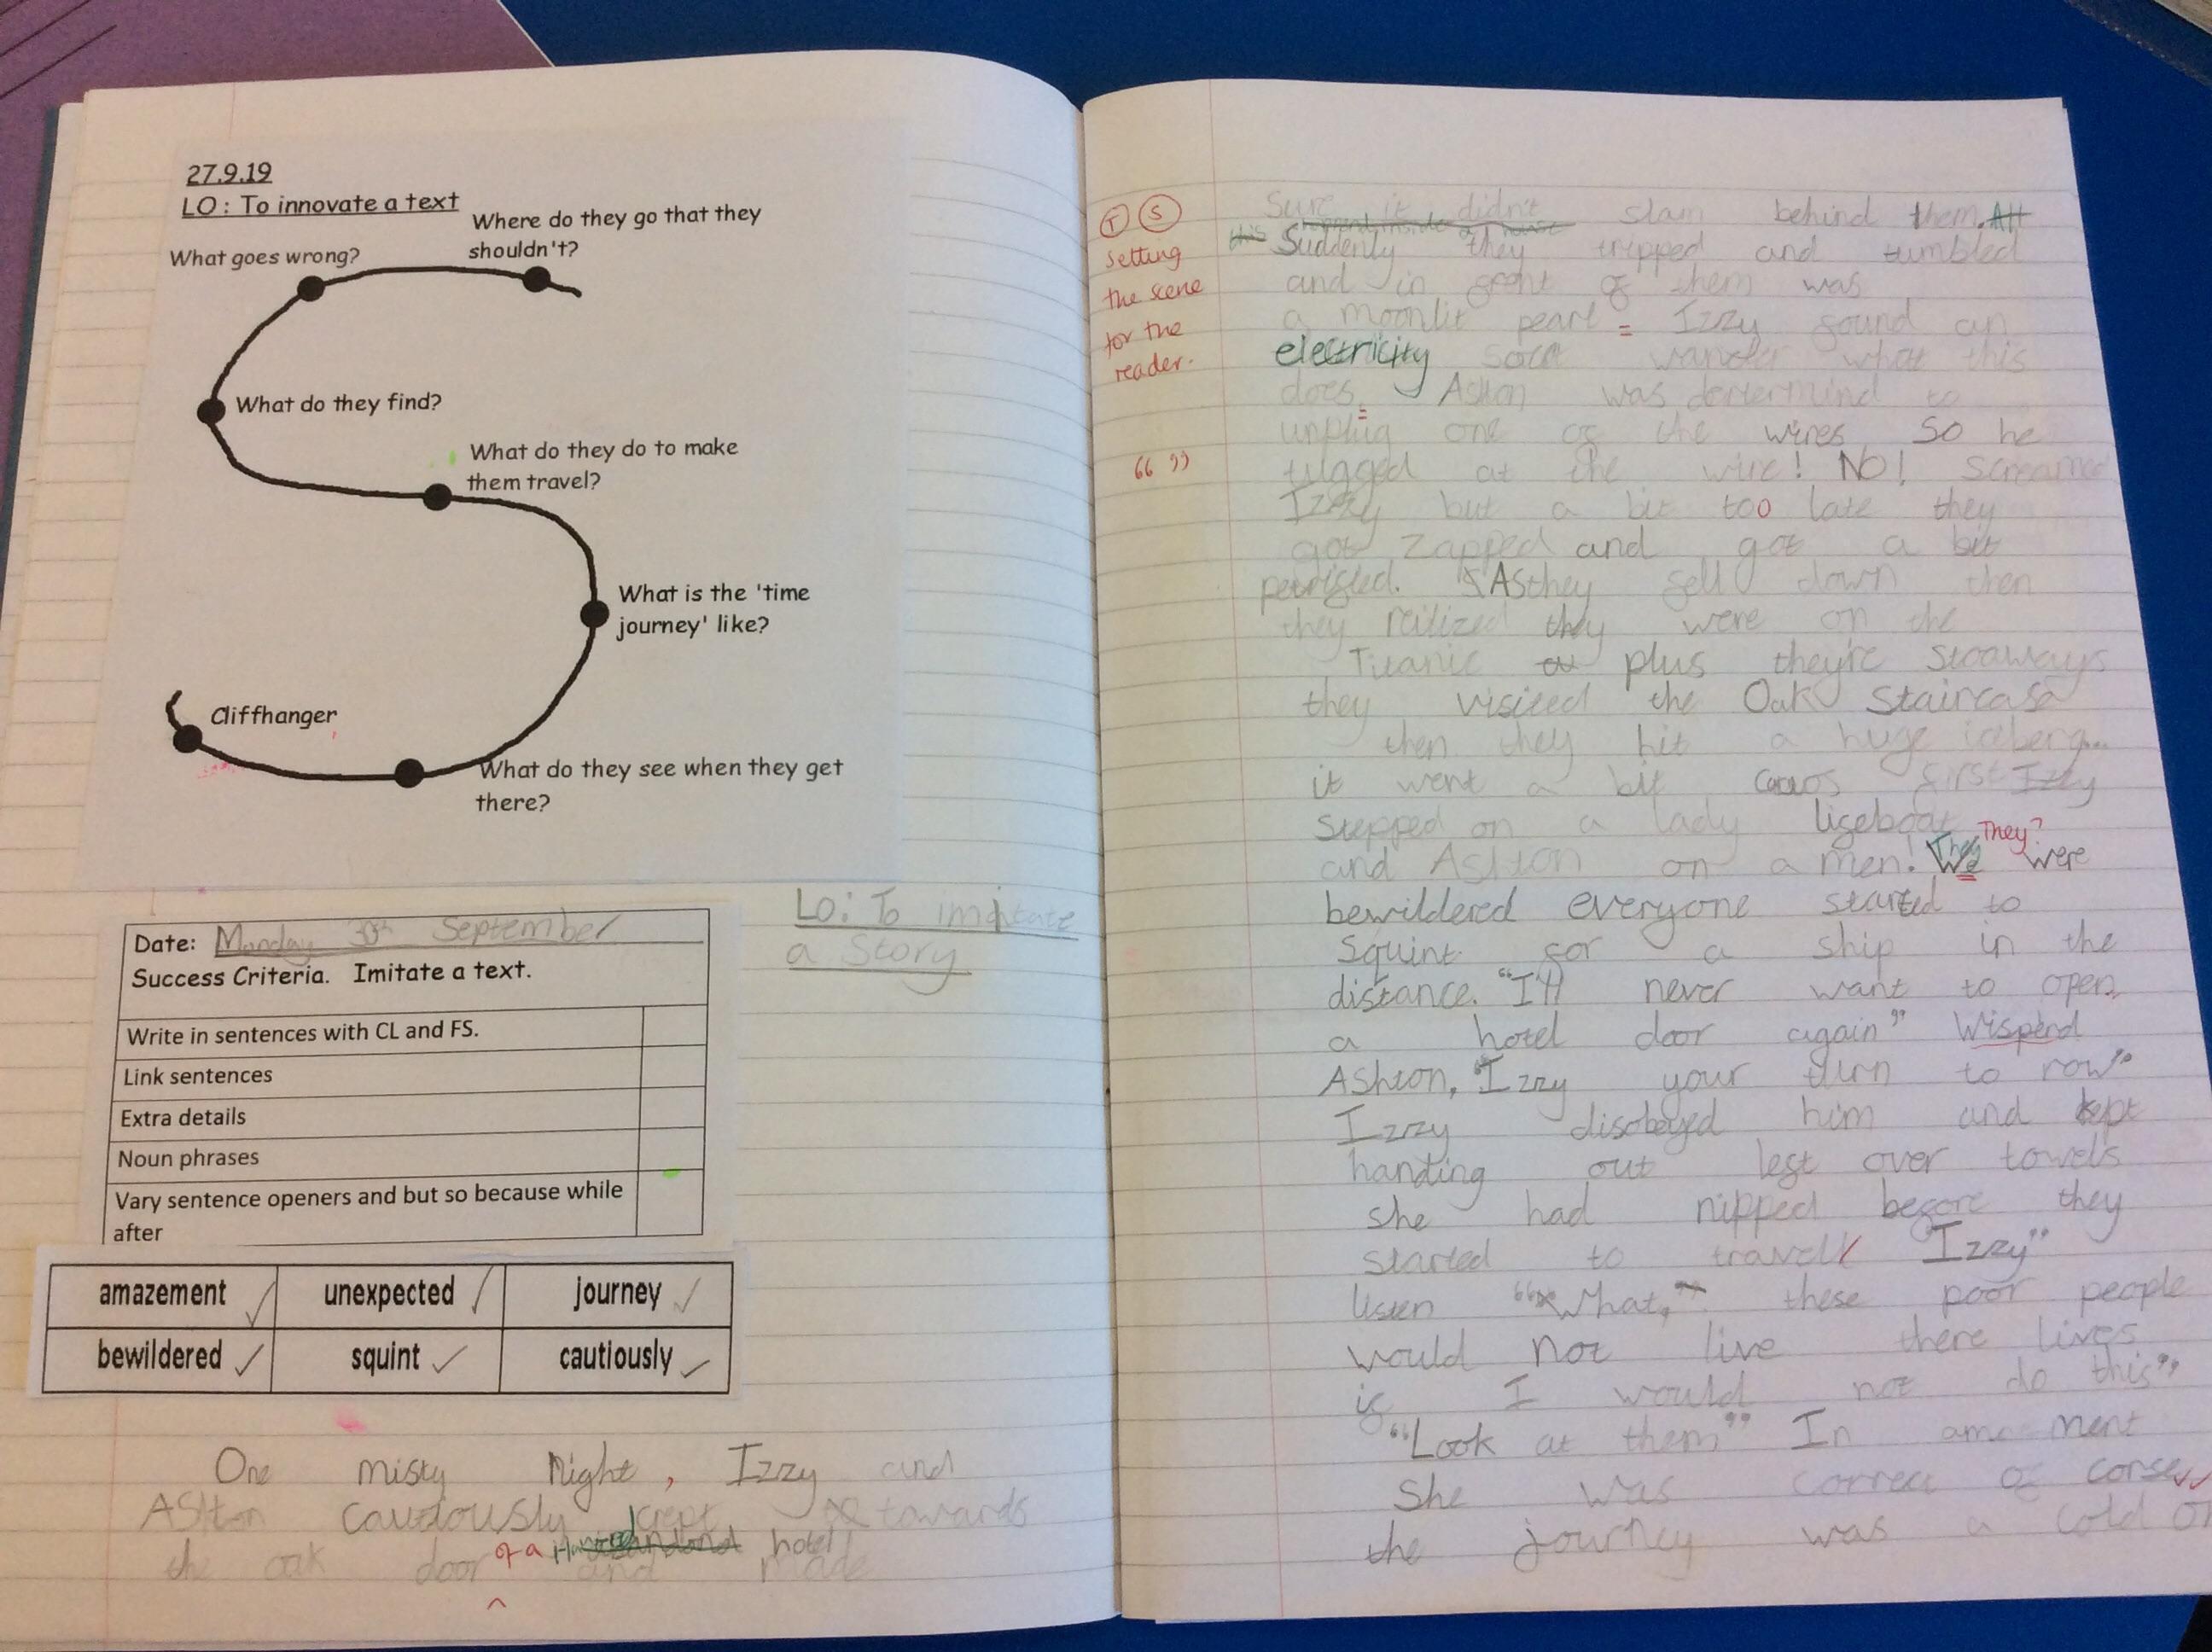 27.9.19
LO : To innovate a text
Where do they go that they
shouldn't?
What goes wrong?
What do they find?
What do they do to make
them travel?
What is the 'time
journey' like?
Cliffhanger
What do they see when they get
there?
Date: Monday 30th September
Success Criteria. Imitate a text.
Write in sentences with CL and FS.
Link sentences
Extra details
Noun phrases
Vary sentence openers and but so because while
after
LO: To imitate
a Story
amazement unexpected journey
bewildered squint cautiously
One misty Night, Izzy and
Ashton cautiously crept towards
of a hotel
the oak door and made
T S
setting
the scene
for the
reader.
“ ”
Sure it didn't slam behind them. All
this happend inside a
Suddenly they tripped and tumbled
and in front of them was
a moonlit pearl Izzy found an
electricity what this
does. Ashton was determind to
unplug one of the wires So he
tugged at the wire! NO! screamed
Izzy but a bit too late they
got zapped and got a bit
As they fell down then
they reilized they were on the
Titanic plus they're stoaways
they visited the Oak Staircase
then they hit a huge iceberg...
it went a bit first Izzy
stepped on a lady lifeboat
They?
They
and Ashton on a men! We were
bewildered everyone started to
Squint for a ship in the
distance. "I'll never want to open
a hotel door again" Wisperd
Ashton, "Izzy your turn to row"
Izzy disobeyed him and kept
handing out left over towels
she had nipped before they
started to travell "Izzy"
listen "What," these poor people
would not live there lives
if I would not do this"
"Look at them" In ament
She was correct of corse
the journey was a cold